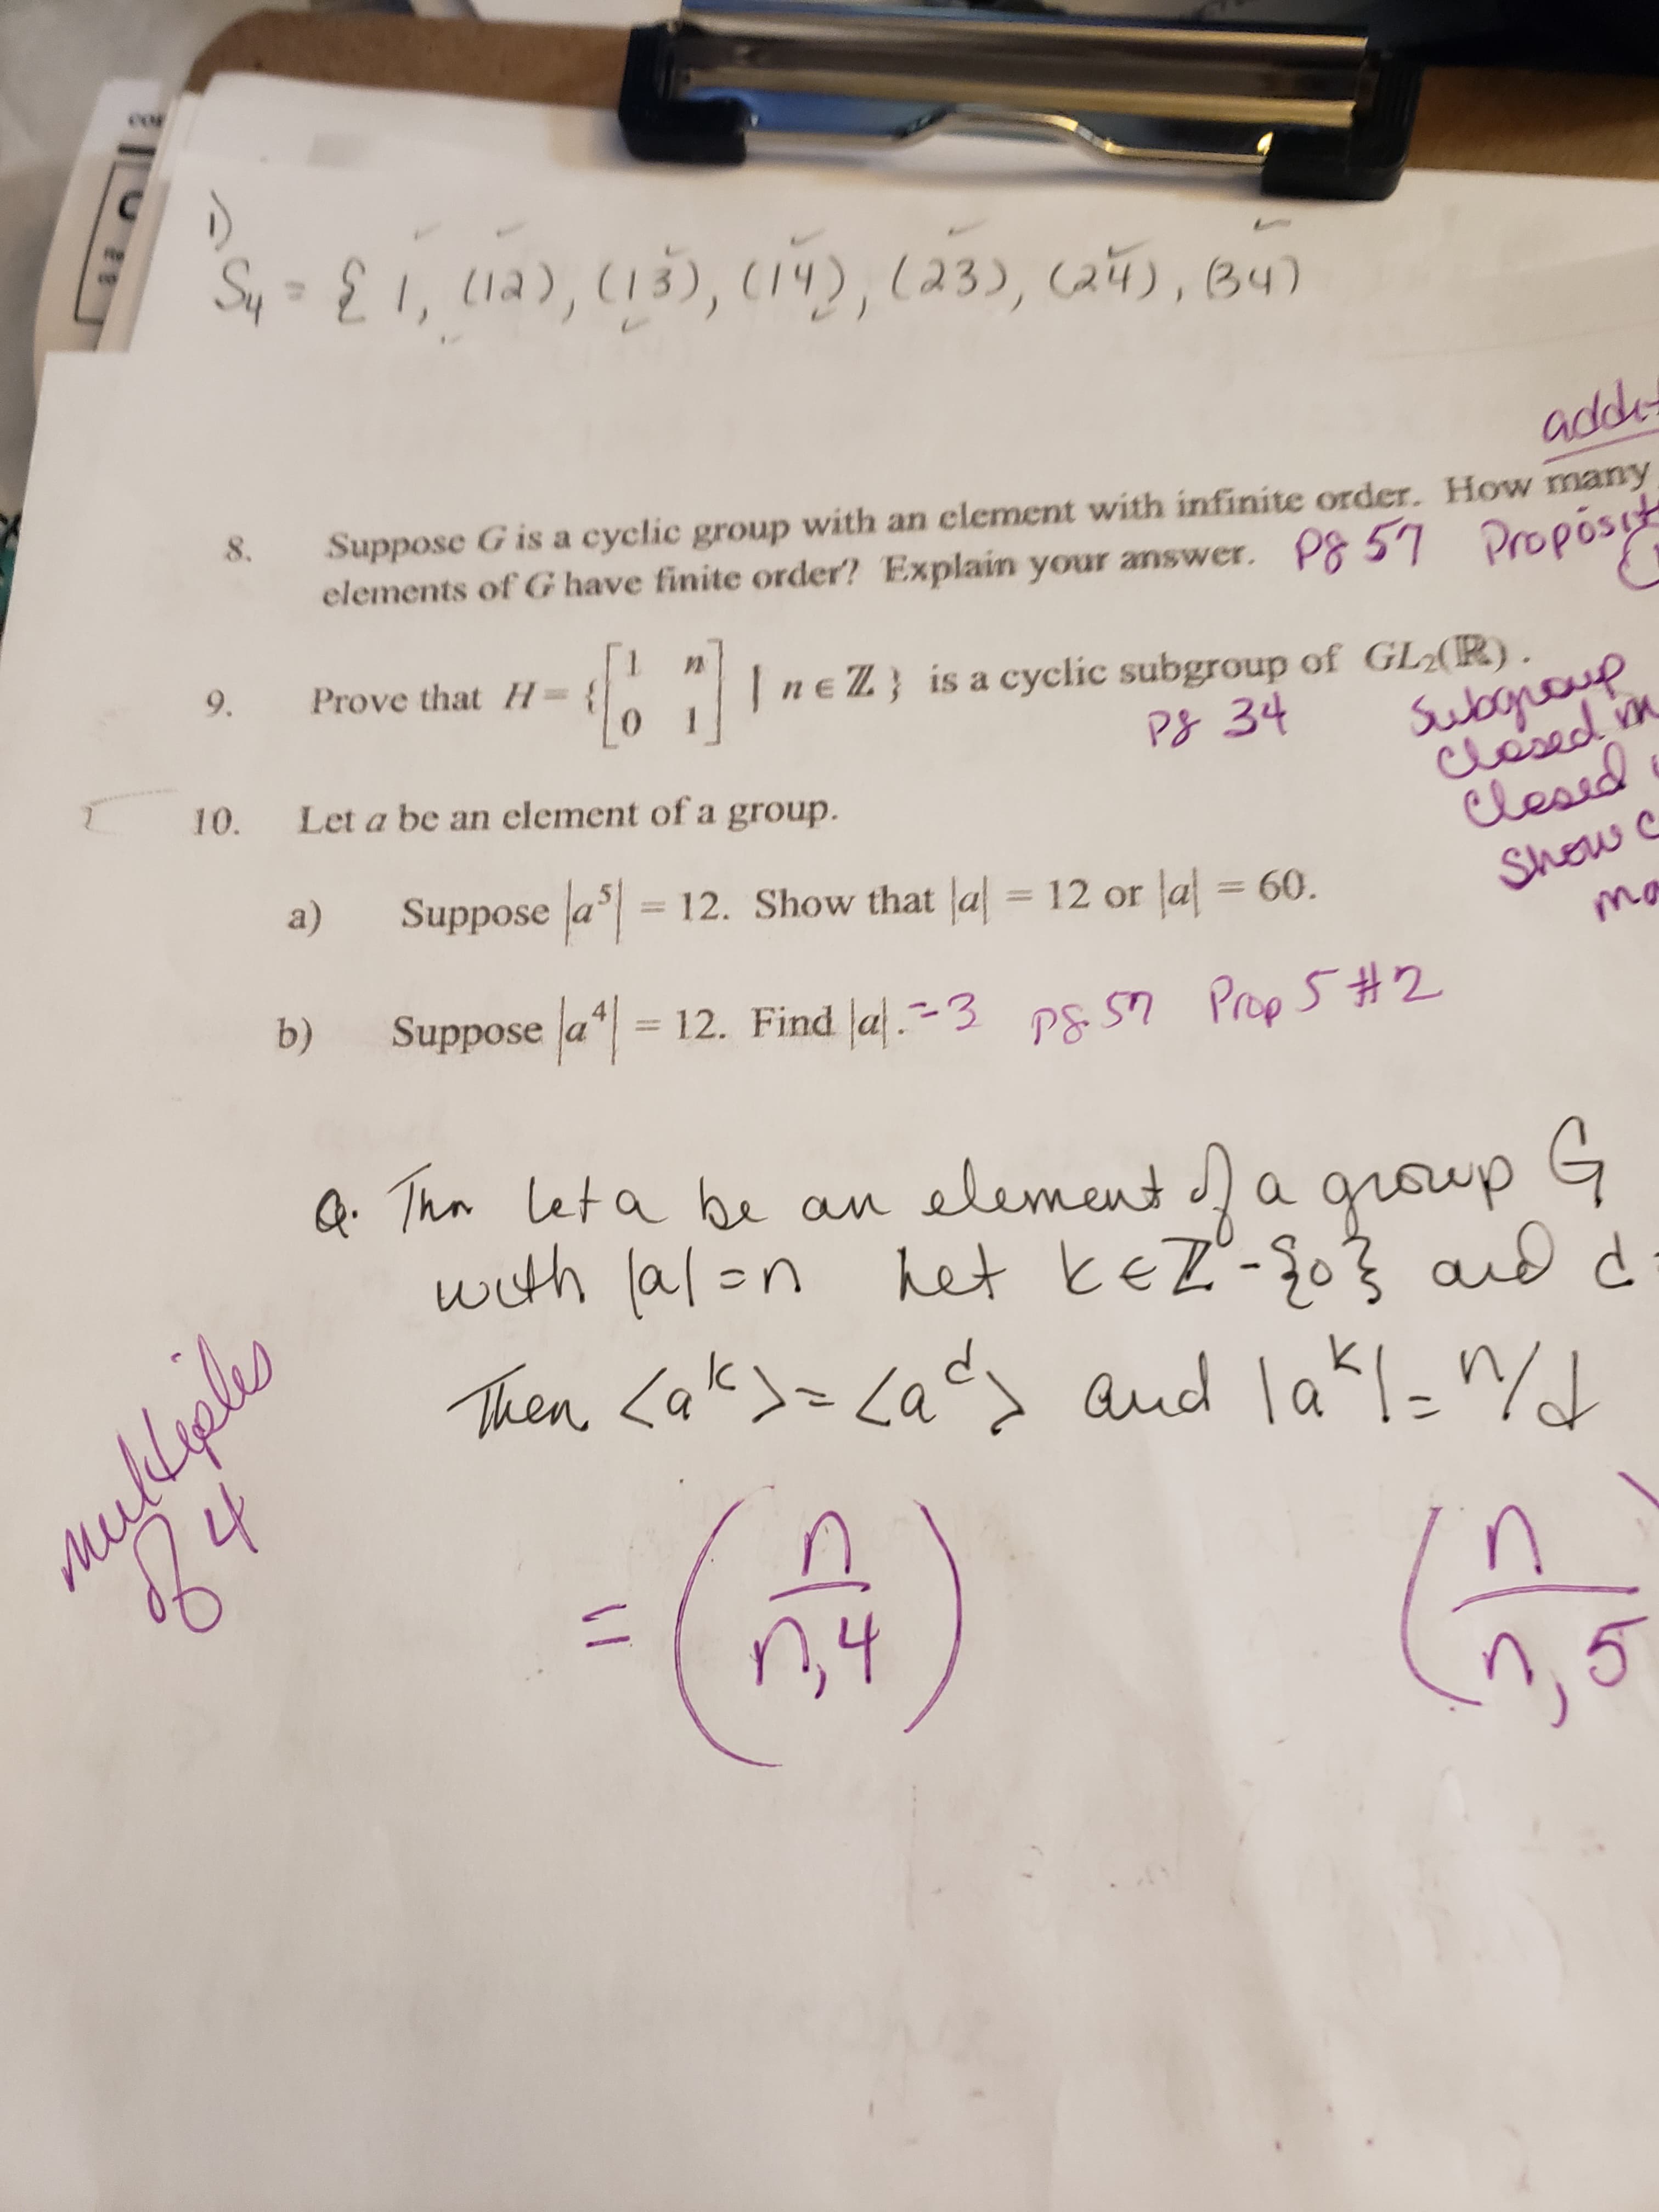 1)
S₄ = { 1, (12), (13), (14), (23), (24), (34)
8. Suppose G is a cyclic group with an element with infinite order. How many
elements of G have finite order? Explain your answer. pg 57
9. Prove that H = { [1 n; 0 1] | n ∈ ℤ } is a cyclic subgroup of GL₂(ℝ).
pg 34 Subgroup
closed
closed
show
10. Let a be an element of a group.
a) Suppose |a⁵| = 12. Show that |a| = 12 or |a| = 60.
b) Suppose |a⁴| = 12. Find |a|. = 3 pg. 57 Prop 5 #2
Q. Thm Let a be an element of a group G
with |a| = n Let k ∈ ℤ - {0} and d =
Then <aᵏ> = <aᵈ> and |aᵏ| = n/d
multiples
of 4
= (n / n,4) (n / n,5